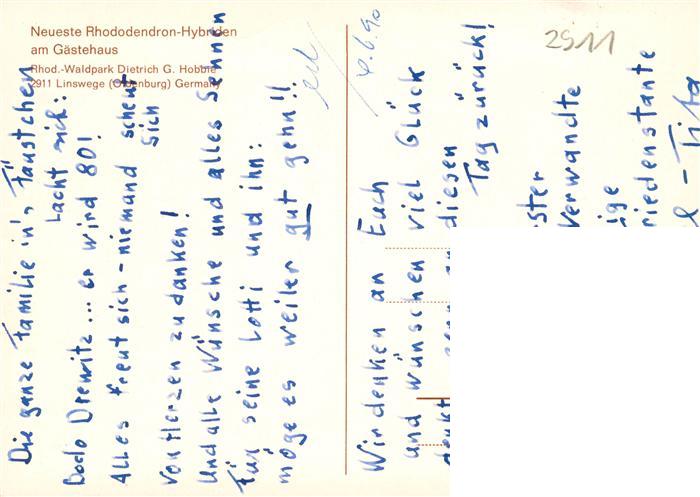 Neueste Rhododendron-Hybriden
am Gästehaus
Rhod.-Waldpark Dietrich G. Hobbie
2911 Linswege (Oldenburg) Germany
Die ganze Familie in's Fäustchen
lacht sich:
Bodo Drewitz... er wird 80!
Alles freut sich - niemand scheut
sich
von Herzen zu danken!
Und alle Wünsche und alles Sehnen
für seine Lotti und ihn:
möge es weiter gut gehn!!
4.6.90
Wir denken an Euch
und wünschen viel Glück
denkt diesen
Tag zurück!
2911
ster
Verwandte
ige
riedenstante